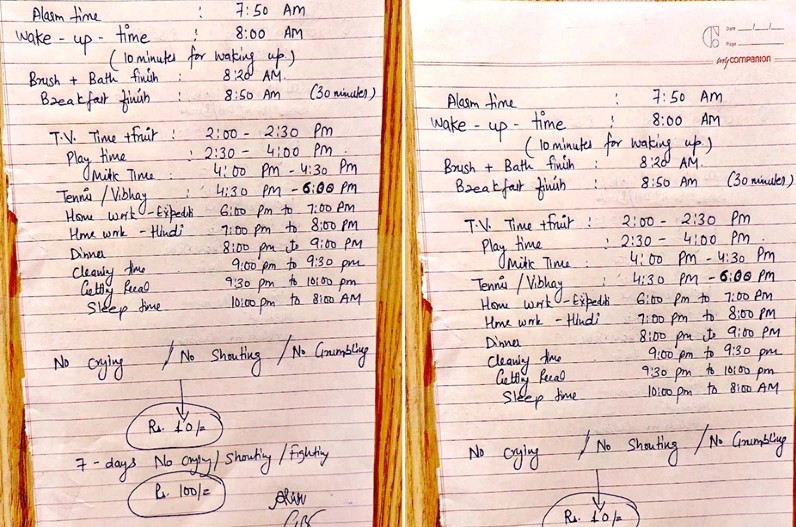 Alarm time : 7:50 AM
Wake - up - time : 8:00 AM
(10 minutes for waking up)
Brush + Bath finish : 8:20 AM.
Breakfast finish : 8:50 AM (30 minutes)
T.V. Time +fruit : 2:00 - 2:30 PM
Play time : 2:30 - 4:00 PM
Milk Time : 4:00 PM - 4:30 PM
Tennis / Vibhay : 4:30 PM - 6:00 PM
Home work - 6:00 PM to 7:00 PM
Hme work - Hindi 7:00 PM to 8:00 PM
Dinner 8:00 pm to 9:00 PM
Cleaning time 9:00 pm to 9:30 pm
Getting 9:30 pm to 10:00 pm
Sleep time 10:00 pm to 8:00 AM
No Crying / No Shouting / No Grumbling
Rs. 10/=
7 - days No Crying / Shouting / Fighting
Rs. 100/=
Date
Page
companion
Alarm time : 7:50 AM
Wake - up - time : 8:00 AM
(10 minutes for waking up)
Brush + Bath finish : 8:20 AM.
Breakfast finish : 8:50 AM (30 minutes)
T.V. Time +fruit : 2:00 - 2:30 PM
Play time : 2:30 - 4:00 PM.
Milk Time : 4:00 PM - 4:30 PM
Tennis / Vibhay : 4:30 PM - 6:00 PM
Home work - 6:00 PM to 7:00 PM
Hme work - Hindi 7:00 PM to 8:00 PM
Dinner 8:00 pm to 9:00 PM
Cleaning time 9:00 pm to 9:30 pm
Getting 9:30 pm to 10:00 pm
Sleep time 10:00 pm to 8:00 AM
No Crying / No Shouting / No Grumbling
Rs. 10/=